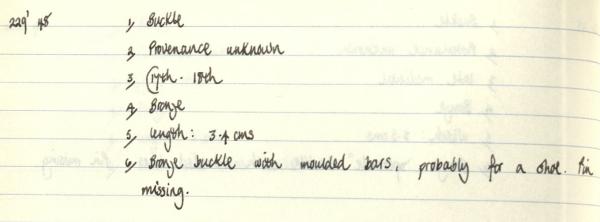 229' 48 1, Buckle
2, Provenance unknown
3, (17th - 18th
4, Bronze
5, length: 3.4 cms
6, Bronze buckle with moulded bars, probably for a shoe. Pin
missing.